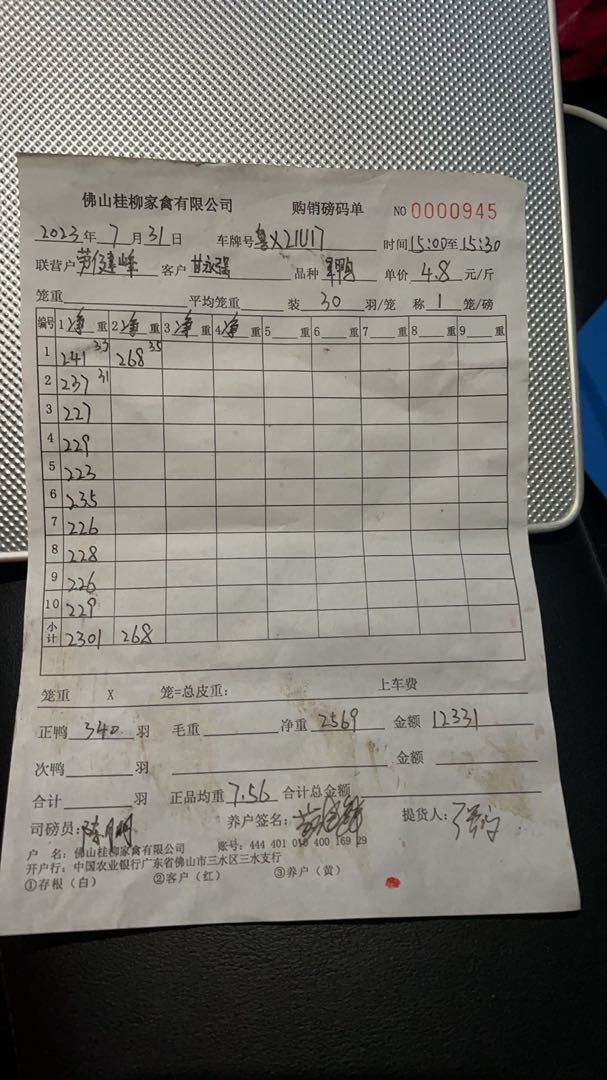 佛山桂柳家禽有限公司 购销磅码单 NO 0000945
2023年 7 月 31 日 车牌号 粤X21U17 时间15:00至15:30
联营户 客户 甘永强 品种 单价 4.8 元/斤
笼重 平均笼重 装 30 羽/笼 称 1 笼/磅
编号 1净重 2净重 3净重 4净重 5 重 6 重 7 重 8 重 9 重
1 241 33 268 35
2 237 31
3 227
4 229
5 223
6 235
7 226
8 228
9 226
10 229
小计 2301 268
笼重 X 笼=总皮重: 上车费
正鸭 340 羽 毛重 净重 2569 金额 12331
次鸭 羽 金额
合计 羽 正品均重 7.56 合计总金额
司磅员: 养户签名: 提货人:
户 名:佛山桂柳家禽有限公司 账号:444 401 010 400 169 29
开户行:中国农业银行广东省佛山市三水区三水支行
①存根(白) ②客户(红) ③养户(黄)